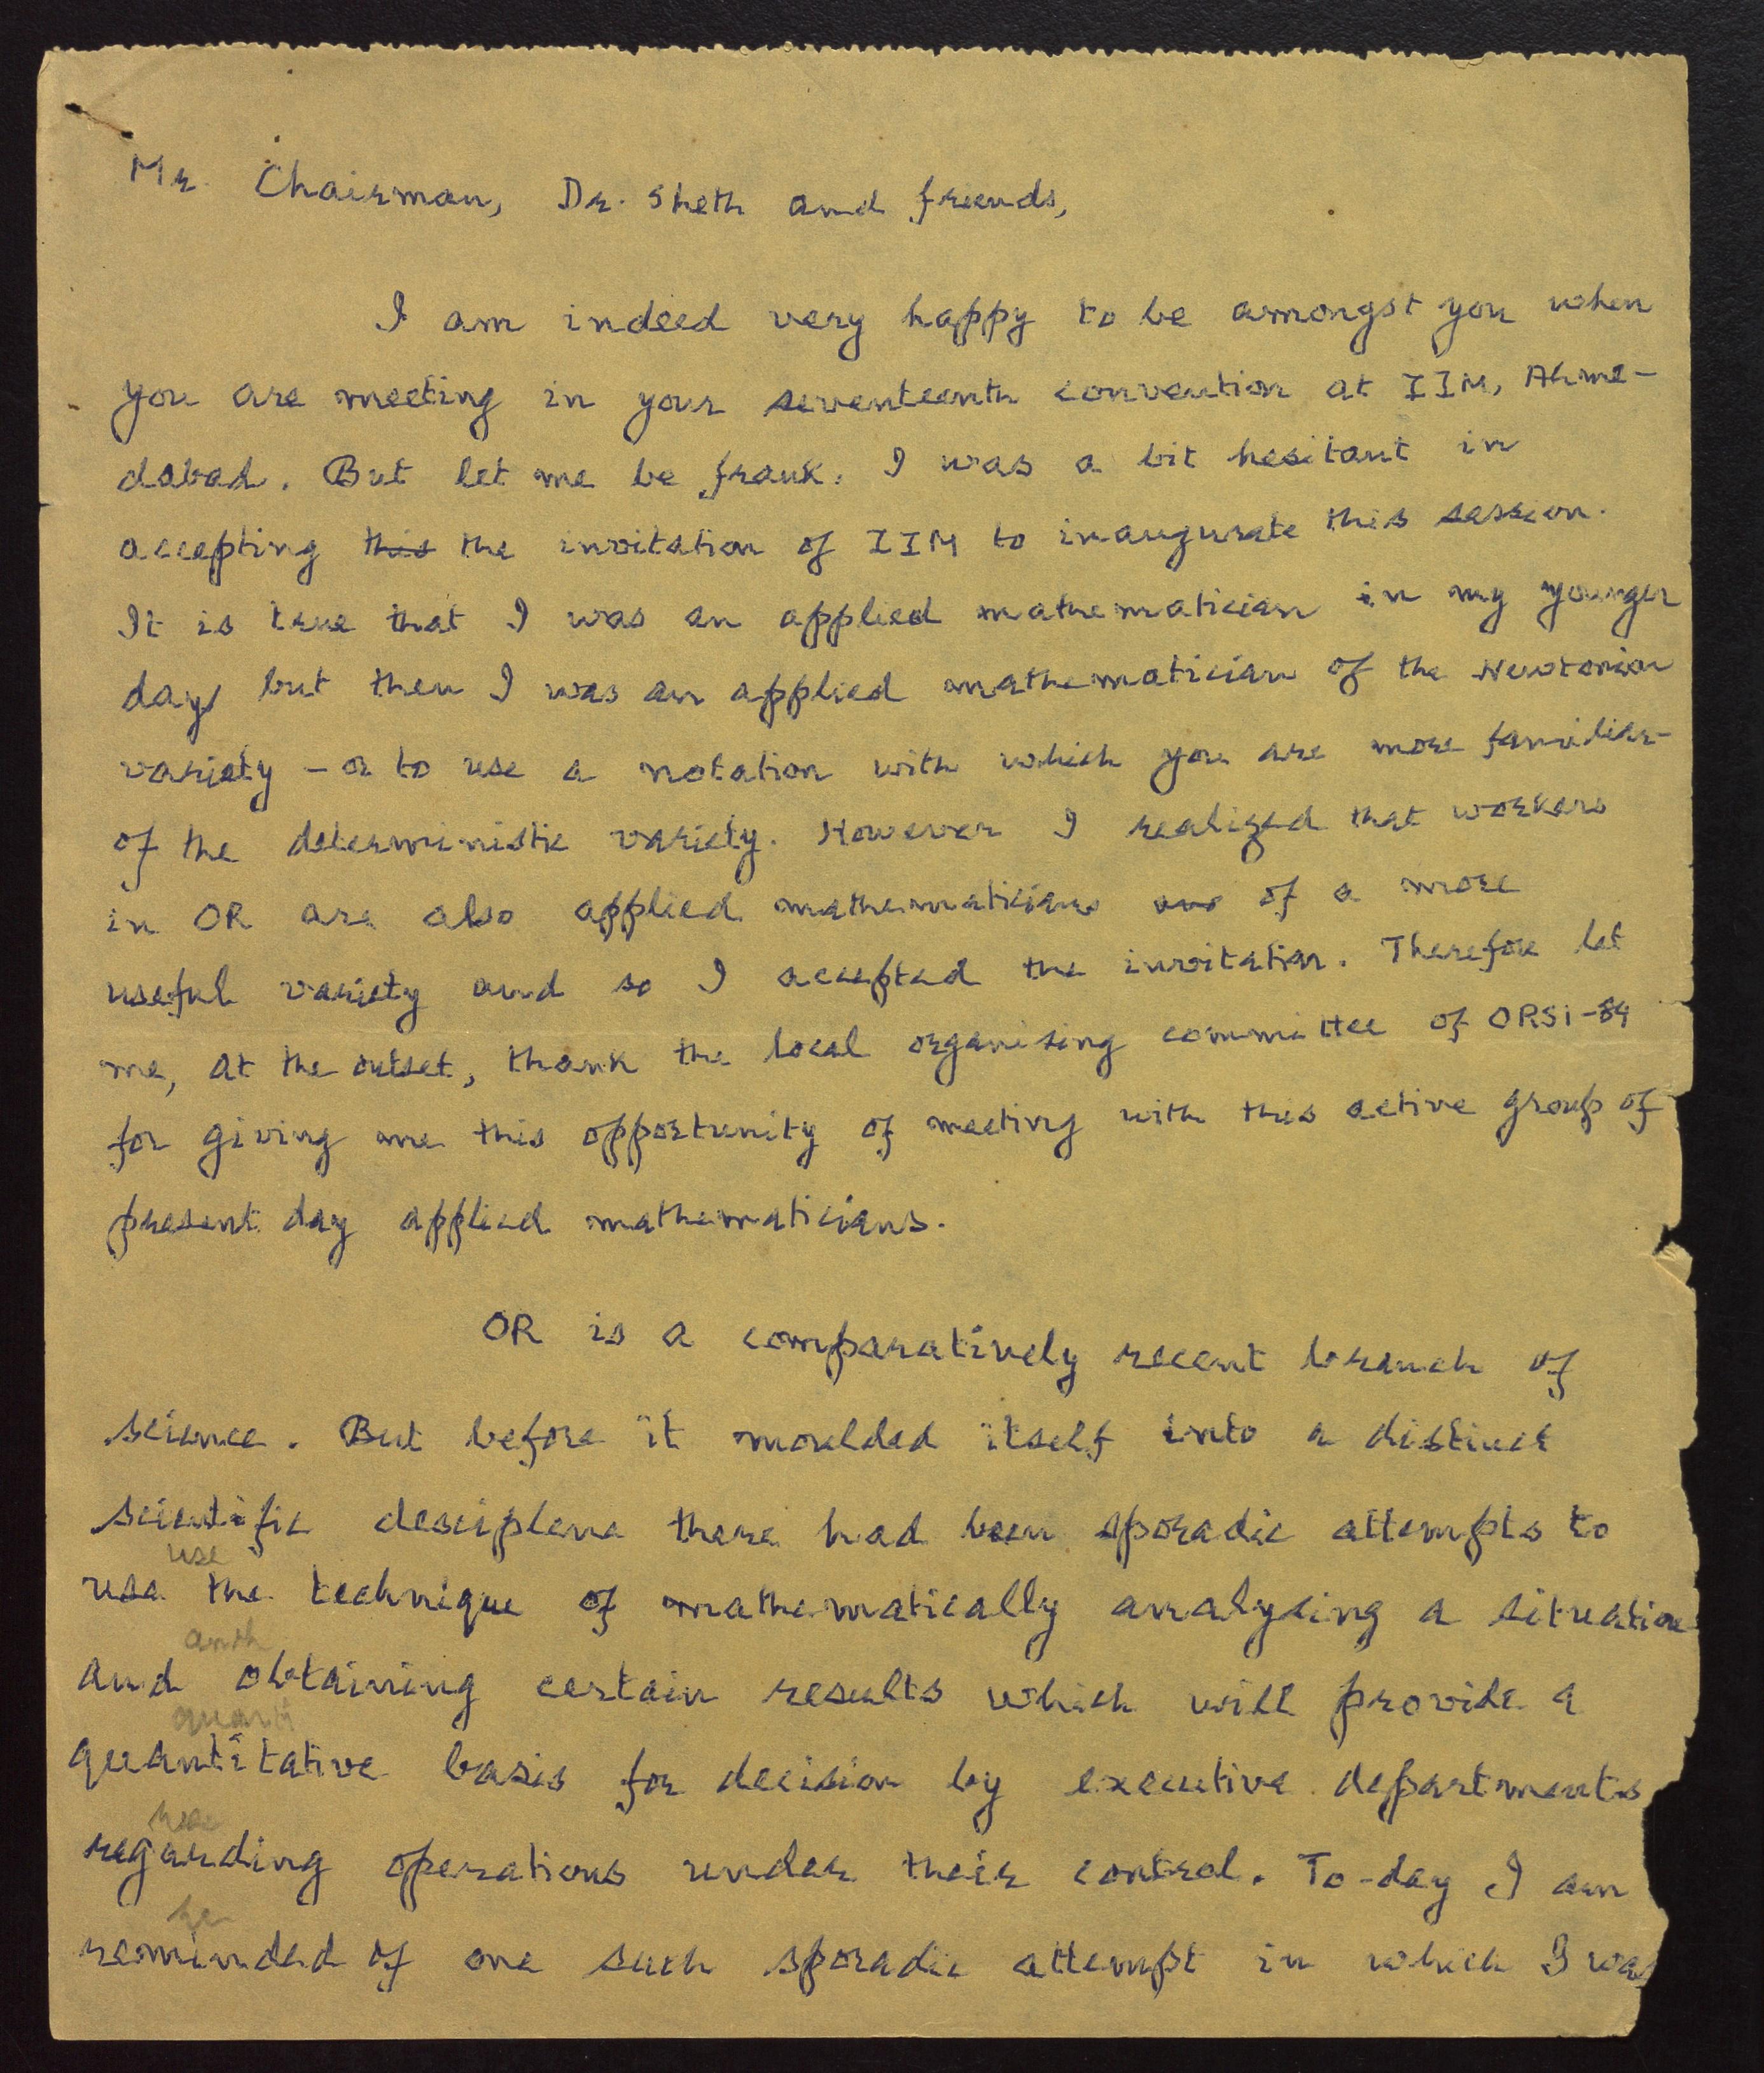 Mr. Chairman, Dr. Sheth and friends,
I am indeed very happy to be amongst you when
you are meeting in your seventeenth convention at IIM, Ahme-
dabad. But let me be frank. I was a bit hesitant in
accepting this the invitation of IIM to inaugurate this session.
It is true that I was an applied mathematician in my younger
days but then I was an applied mathematician of the Newtonian
variety – or to use a notation with which you are more familiar –
of the deterministic variety. However I realized that workers
in OR are also applied mathematicians of a more
useful variety and so I accepted the invitation. Therefore let
me, at the outset, thank the local organising committee of ORSI-84
for giving me this opportunity of meeting with this active group of
present day applied mathematicians.
OR is a comparatively recent branch of
science. But before it moulded itself into a distinct
scientific desciplene there had been sporadic attempts to
use
use the technique of mathematically analysing a situation
and obtaining certain results which will provide a
quanti
quantitative basis for decision by executive departments
regarding operations under their control. To-day I am
reminded of one such sporadic attempt in which I was